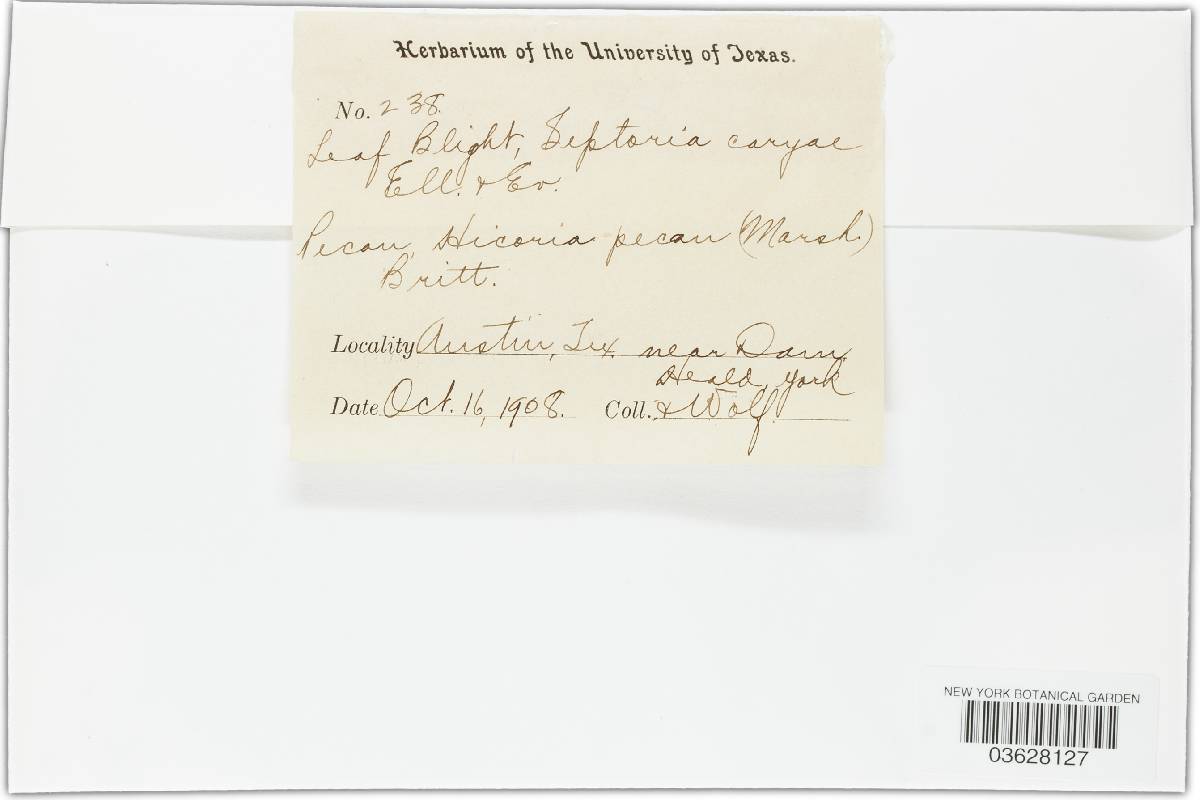 Herbarium of the University of Texas.
No. 238.
Leaf Blight, Septoria caryae
Ell. & Ev.
Pecan, Hicoria pecan (Marsh.)
Britt.
Locality Austin, Tex. near Dam.
Heald, York
Date Oct. 16, 1908. Coll. & Wolf.
NEW YORK BOTANICAL GARDEN
03628127